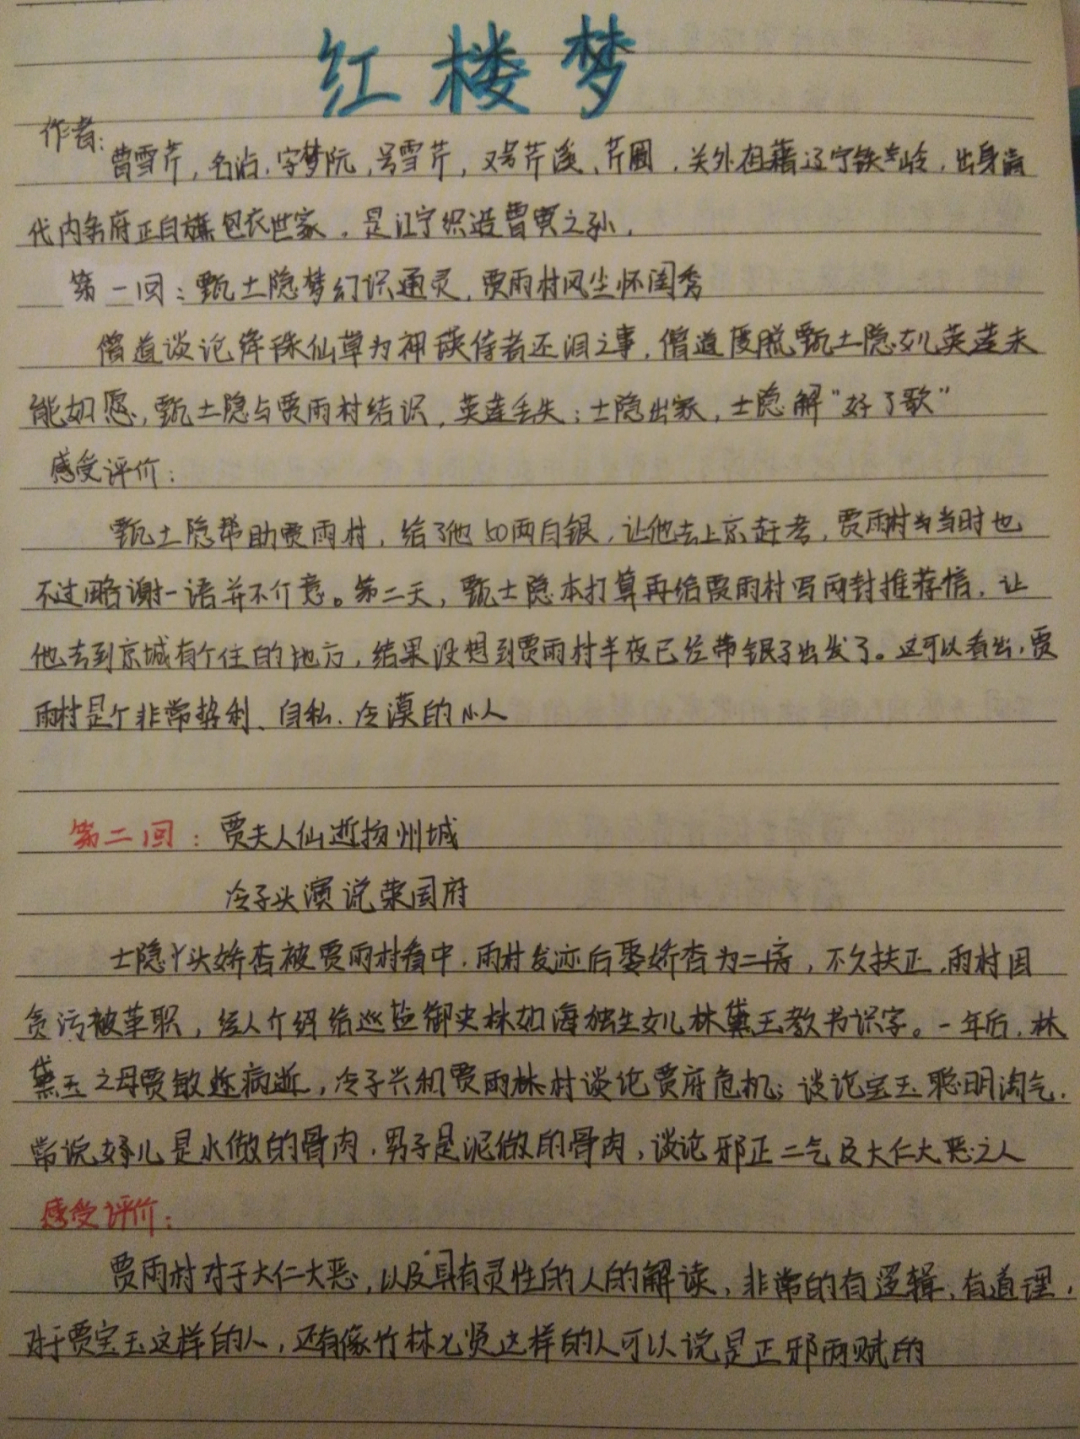 红楼梦
作者:
曹雪芹,名沾,字梦阮,号雪芹,又号芹溪、芹圃,关外祖籍辽宁铁岭,出身清
代内务府正白旗包衣世家,是江宁织造曹寅之孙,
第一回:甄士隐梦幻识通灵,贾雨村风尘怀闺秀
僧道谈论绛珠仙草为神瑛侍者还泪之事,僧道度脱甄士隐女儿英莲未
能如愿,甄士隐与贾雨村结识,英莲丢失;士隐出家,士隐解“好了歌”
感受评价:
甄士隐帮助贾雨村,给了他50两白银,让他去上京赶考,贾雨村当当时也
不过略谢一语并不介意。第二天,甄士隐本打算再给贾雨村写两封推荐信,让
他去到京城有个住的地方,结果没想到贾雨村半夜已经带银子出发了。这可以看出,贾
雨村是个非常势利、自私、冷漠的小人
第二回:贾夫人仙逝扬州城
冷子头演说荣国府
士隐丫头娇杏被贾雨村看中,雨村发迹后娶娇杏为二房,不久扶正,雨村因
贪污被革职,经人介绍给巡盐御史林如海独生女儿林黛玉教书识字。一年后,林
黛玉之母贾敏病逝,冷子兴和贾雨村谈论贾府危机;谈论宝玉聪明淘气,
常说女儿是水做的骨肉,男子是泥做的骨肉,谈论邪正二气及大仁大恶之人
感受评价:
贾雨村对于大仁大恶,以及具有灵性的人的解读,非常的有逻辑、有道理,
对于贾宝玉这样的人,还有像竹林七贤这样的人可以说是正邪两赋的